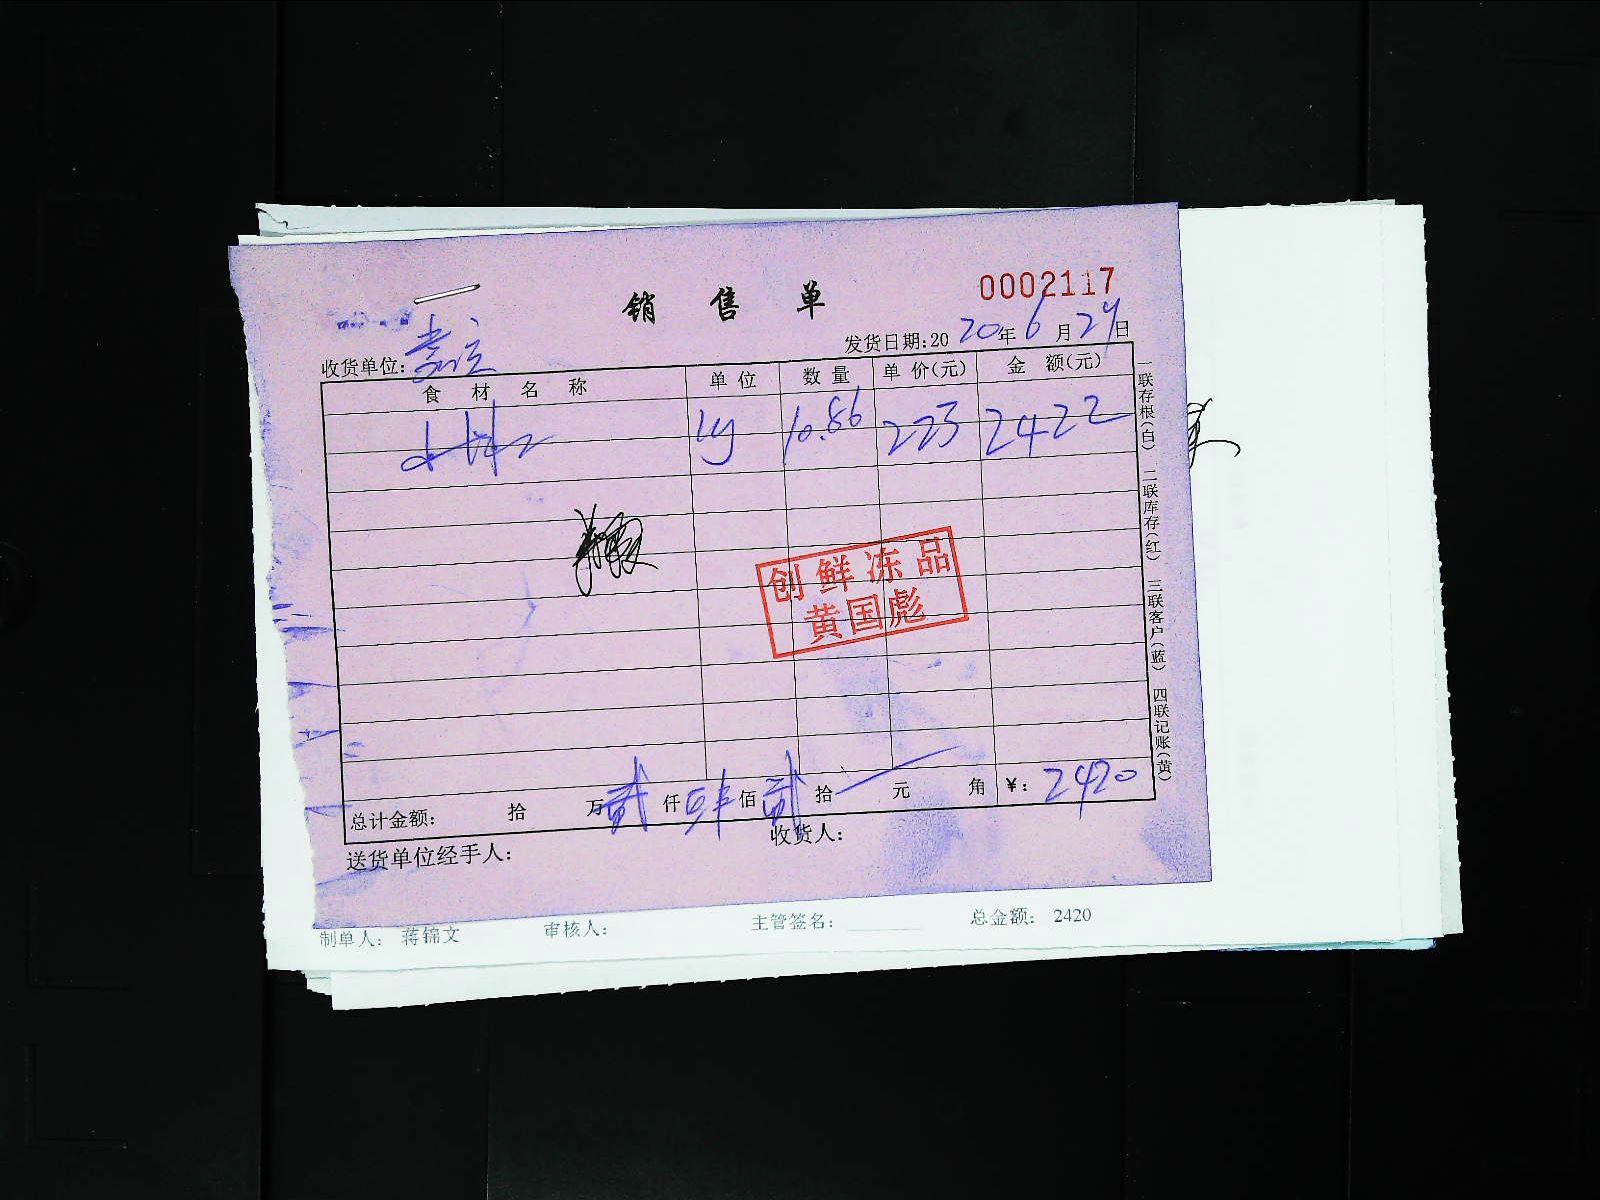 销售单
0002117
收货单位:
发货日期:2020年6月29日
食材名称 单位 数量 单价(元) 金额(元)
kg 10.86 223 2422
创鲜冻品
黄国彪
总计金额: 拾 万贰仟肆佰贰拾 元 角 ¥: 2420
送货单位经手人: 收货人:
一联存根(白) 二联库存(红) 三联客户(蓝) 四联记账(黄)
制单人: 蒋锦文 审核人: 主管签名: 总金额: 2420